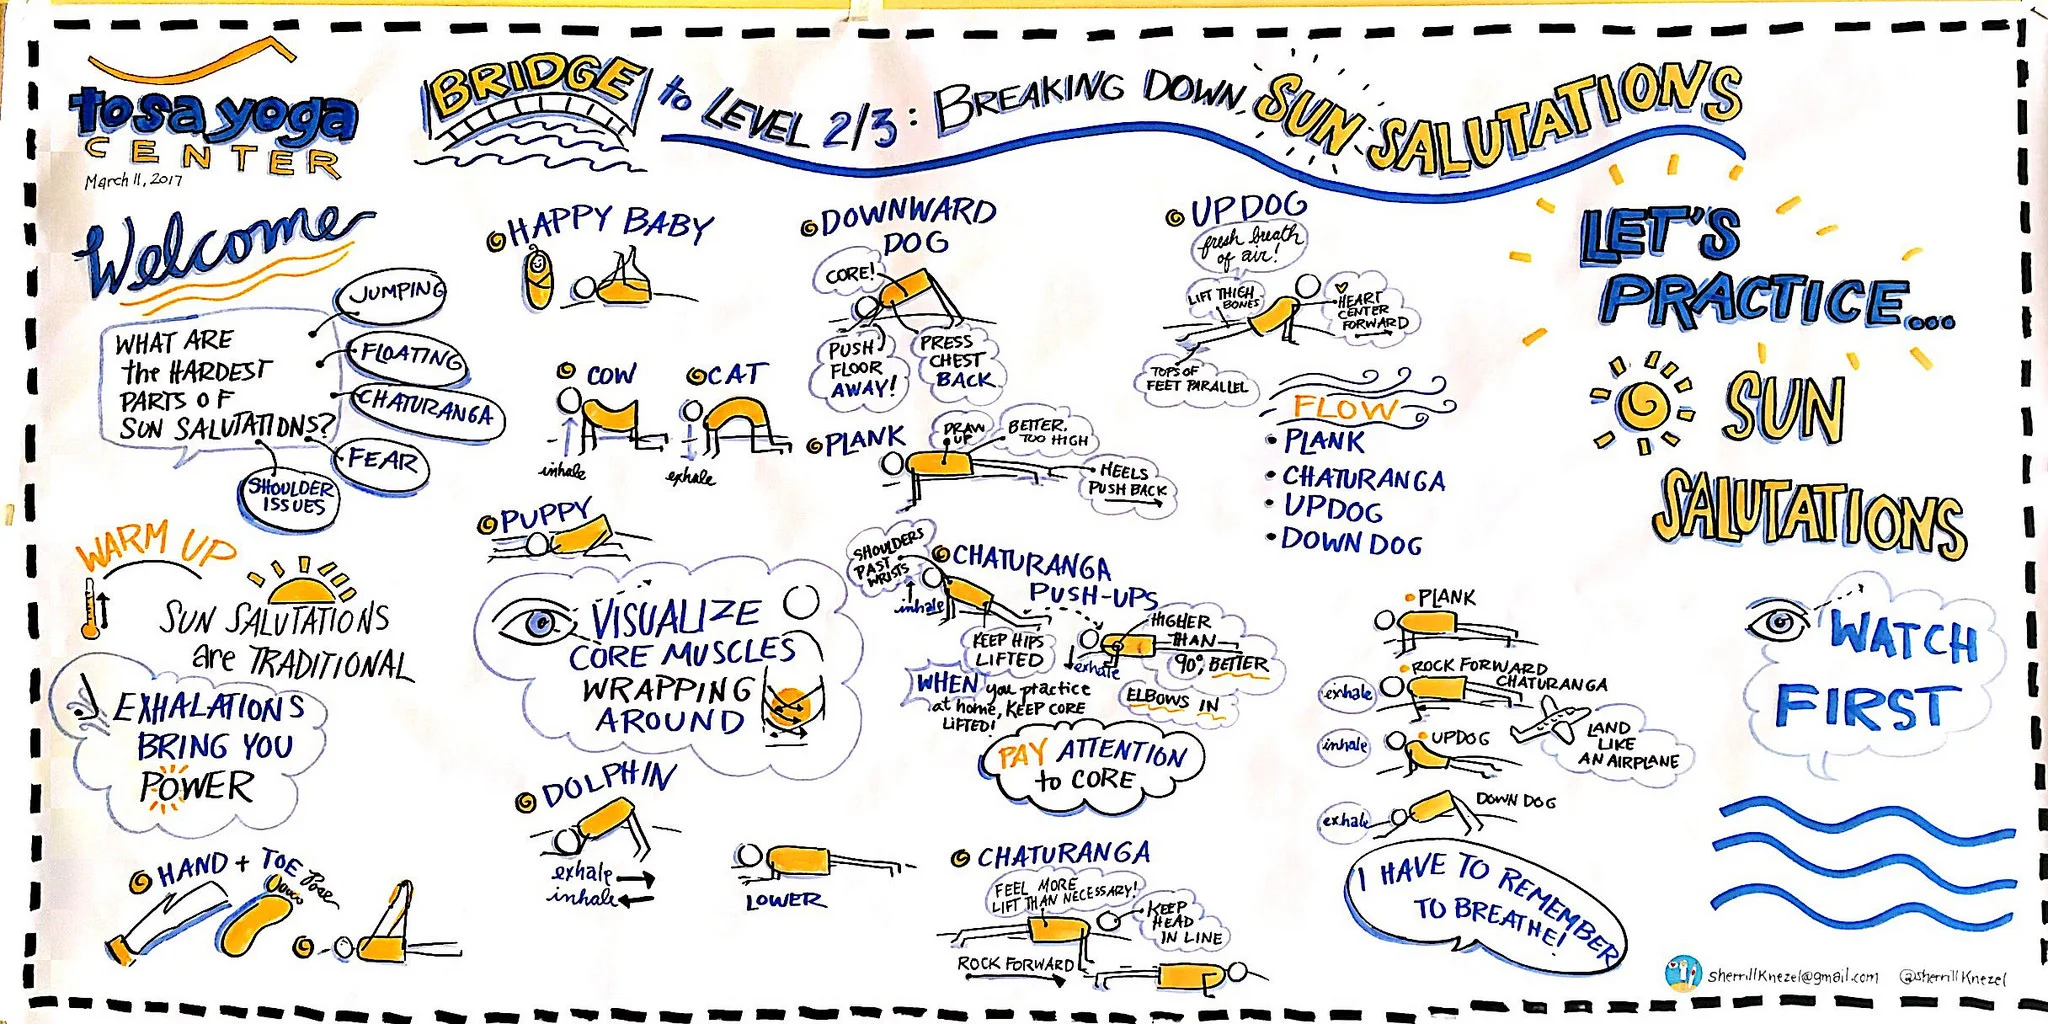 tosa yoga
CENTER
March 11, 2017
BRIDGE to LEVEL 2/3: BREAKING DOWN SUN SALUTATIONS
Welcome
WHAT ARE
the HARDEST
PARTS OF
SUN SALUTATIONS?
JUMPING
FLOATING
CHATURANGA
FEAR
SHOULDER
ISSUES
WARM UP
SUN SALUTATIONS
are TRADITIONAL
EXHALATIONS
BRING YOU
POWER
HAND + TOE
Pose
HAPPY BABY
COW
inhale
CAT
exhale
PUPPY
VISUALIZE
CORE MUSCLES
WRAPPING
AROUND
DOLPHIN
exhale
inhale
LOWER
DOWNWARD
DOG
CORE!
PUSH
FLOOR
AWAY!
PRESS
CHEST
BACK
PLANK
DRAW
UP
BETTER,
TOO HIGH
HEELS
PUSH BACK
CHATURANGA
PUSH-UPS
SHOULDERS
PAST
WRISTS
inhale
KEEP HIPS
LIFTED
exhale
HIGHER
THAN
90°, BETTER
ELBOWS IN
WHEN you practice
at home, KEEP CORE
LIFTED!
PAY ATTENTION
to CORE
CHATURANGA
FEEL MORE
LIFT THAN NECESSARY!
KEEP
HEAD
IN LINE
ROCK FORWARD
UPDOG
fresh breath
of air!
LIFT THIGH
BONES
HEART
CENTER
FORWARD
TOPS OF
FEET PARALLEL
FLOW
• PLANK
• CHATURANGA
• UPDOG
• DOWN DOG
PLANK
ROCK FORWARD
CHATURANGA
exhale
LAND
LIKE
AN AIRPLANE
inhale
UPDOG
exhale
DOWN DOG
I HAVE TO REMEMBER
TO BREATHE!
LET'S
PRACTICE...
SUN
SALUTATIONS
WATCH
FIRST
sherrillknezel@gmail.com @sherrillknezel